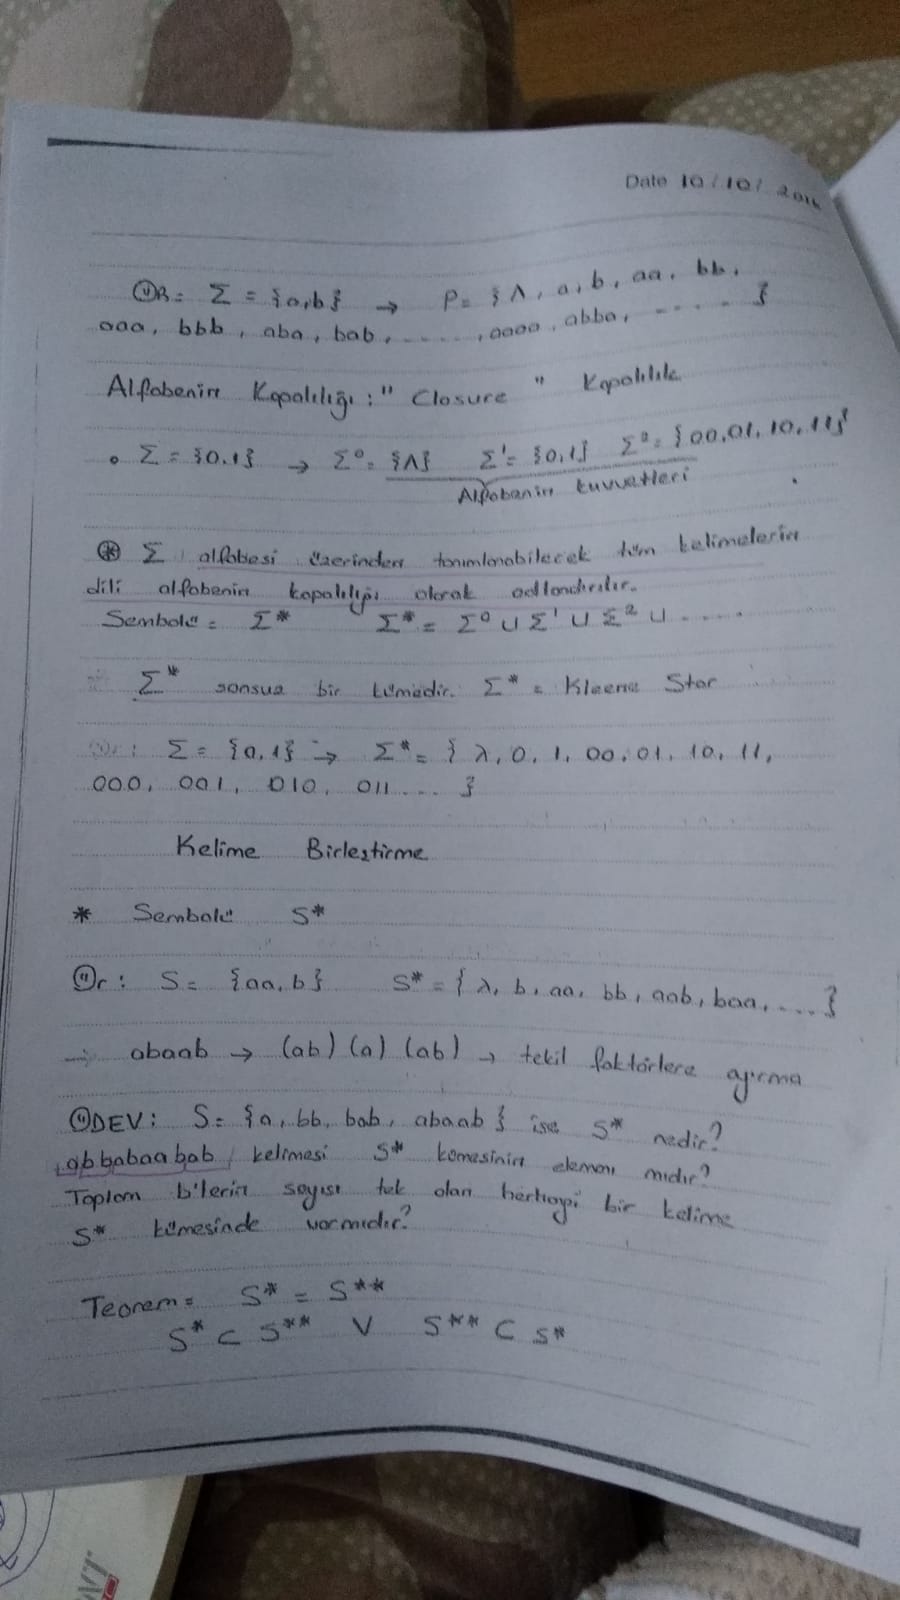 Date 10/10/2016
ÖR= Σ = {a,b} → P= {Λ, a, b, aa, bb,
aaa, bbb, aba, bab, ....., aaaa, abba, ..... }
Alfabenin Kapalılığı: "Closure" Kapalılık
• Σ = {0,1} → Σ⁰= {Λ} Σ¹= {0,1} Σ²= {00,01,10,11}
Alfabenin kuvvetleri
⊛ Σ alfabesi üzerinden tanımlanabilecek tüm kelimelerin
dili alfabenin kapalılığı olarak adlandırılır.
Sembolü = Σ* Σ* = Σ⁰ U Σ¹ U Σ² U .....
Σ* sonsuz bir kümedir. Σ* = Kleene Star
Ör: Σ= {0,1} → Σ*= { λ, 0, 1, 00, 01, 10, 11,
000, 001, 010, 011 ... }
Kelime Birleştirme
* Sembolü S*
Ör: S= {aa,b} S* = { λ, b, aa, bb, aab, baa, .... }
→ abaab → (ab) (a) (ab) → tekil faktörlere ayırma
ÖDEV: S= {a, bb, bab, abaab} ise S* nedir?
abbabaabab kelimesi S* kümesinin elemanı mıdır?
Toplam b'lerin sayısı tek olan herhangi bir kelime
S* kümesinde varmıdır?
Teorem= S* = S**
S* ⊂ S** V S** ⊂ S*